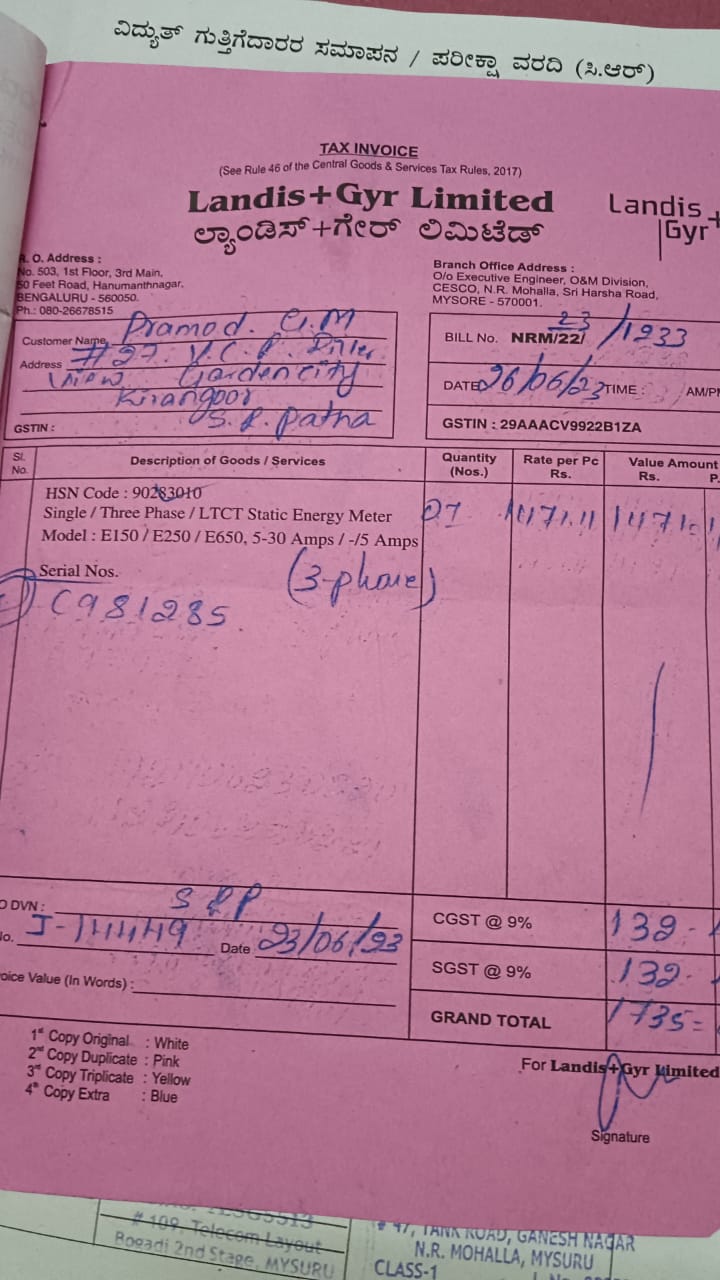 ವಿದ್ಯುತ್ ಗುತ್ತಿಗೆದಾರರ ಸಮಾಪನ / ಪರೀಕ್ಷಾ ವರದಿ (ಸಿ.ಆರ್)
TAX INVOICE
(See Rule 46 of the Central Goods & Services Tax Rules, 2017)
Landis+Gyr Limited
ಲ್ಯಾಂಡಿಸ್+ಗೇರ್ ಲಿಮಿಟೆಡ್
Landis+
Gyr
R. O. Address :
No. 503, 1st Floor, 3rd Main,
50 Feet Road, Hanumanthnagar,
BENGALURU - 560050.
Ph.: 080-26678515
Branch Office Address :
O/o Executive Engineer, O&M Division,
CESCO, N.R. Mohalla, Sri Harsha Road,
MYSORE - 570001.
Customer Name Pramod. G.M
Address #27. V.C.P.
View Gardencity
Kirangoor
S.R. Patna
GSTIN :
BILL No. NRM/22/ 23 /1933
DATE 26/06/23 TIME : AM/P
GSTIN : 29AAACV9922B1ZA
Sl. No.
Description of Goods / Services
Quantity (Nos.)
Rate per Pc Rs.
Value Amount Rs. P.
HSN Code : 90283010
Single / Three Phase / LTCT Static Energy Meter 01 1471.11 1471.
Model : E150 / E250 / E650, 5-30 Amps / -/5 Amps
Serial Nos. (3-phase)
C981285
O DVN : SRP
No. J-14449 Date 23/06/23
oice Value (In Words) :
CGST @ 9% 132-
SGST @ 9% 132-
GRAND TOTAL 1735=
1st Copy Original : White
2nd Copy Duplicate : Pink
3rd Copy Triplicate : Yellow
4th Copy Extra : Blue
For Landis+Gyr Limited
Signature
# 109, Telecom Layout
Bogadi 2nd Stage, MYSURU
# 47, TANK ROAD, GANESH NAGAR
N.R. MOHALLA, MYSURU
CLASS-1